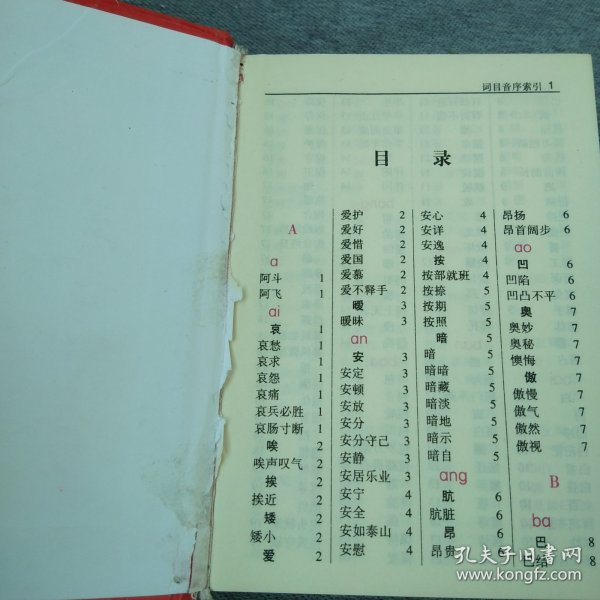 词目音序索引 1
目 录
A
a
阿斗 1
阿飞 1
ai
哀 1
哀愁 1
哀求 1
哀怨 1
哀痛 1
哀兵必胜 1
哀肠寸断 1
唉 2
唉声叹气 2
挨 2
挨近 2
矮 2
矮小 2
爱 2
爱护 2
爱好 2
爱惜 2
爱国 2
爱慕 2
爱不释手 2
暧 3
暧昧 3
an
安 3
安定 3
安顿 3
安放 3
安分 3
安分守己 3
安静 3
安居乐业 3
安宁 4
安全 4
安如泰山 4
安慰 4
安心 4
安详 4
安逸 4
按 4
按部就班 4
按捺 5
按期 5
按照 5
暗 5
暗 5
暗暗 5
暗藏 5
暗淡 5
暗地 5
暗示 5
暗自 5
ang
肮 6
肮脏 6
昂 6
昂贵 6
昂扬 6
昂首阔步 6
ao
凹 6
凹陷 6
凹凸不平 6
奥 7
奥妙 7
奥秘 7
懊悔 7
傲 7
傲慢 7
傲气 7
傲然 7
傲视 7
B
ba
巴 8
巴结 8
孔夫子旧书网
www.kongfz.com